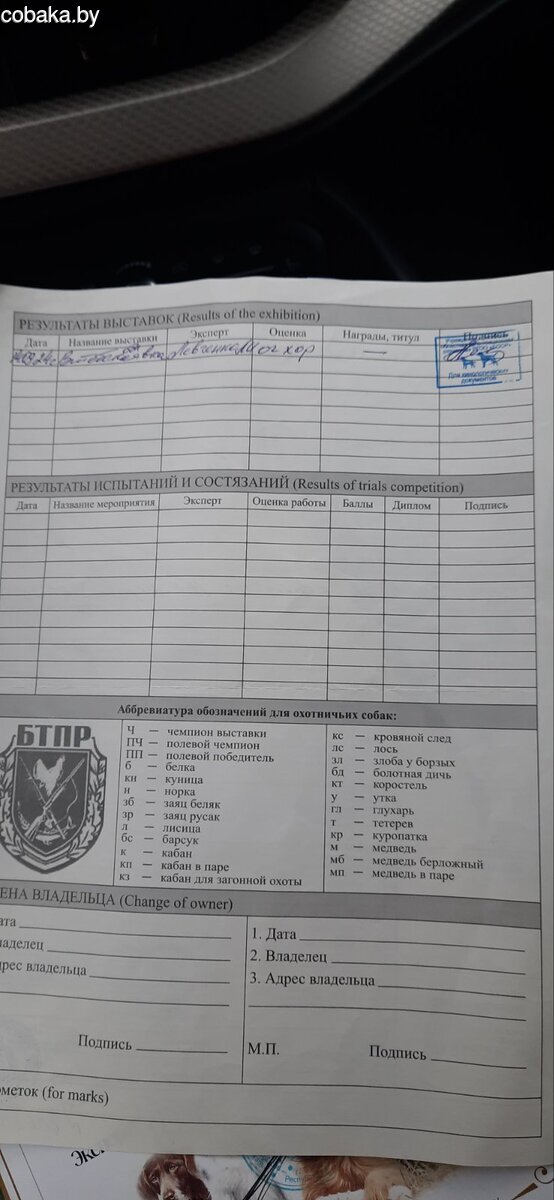 cobaka.by
РЕЗУЛЬТАТЫ ВЫСТАВОК (Results of the exhibition)
Дата Название выставки Эксперт Оценка Награды, титул Подпись
оч хор —
Для кинологических
документов
РЕЗУЛЬТАТЫ ИСПЫТАНИЙ И СОСТЯЗАНИЙ (Results of trials competition)
Дата Название мероприятия Эксперт Оценка работы Баллы Диплом Подпись
Аббревиатура обозначений для охотничьих собак:
БТПР
Ч — чемпион выставки
ПЧ — полевой чемпион
ПП — полевой победитель
б — белка
кн — куница
н — норка
зб — заяц беляк
зр — заяц русак
л — лисица
бс — барсук
к — кабан
кп — кабан в паре
кз — кабан для загонной охоты
кс — кровяной след
лс — лось
зл — злоба у борзых
бд — болотная дичь
кт — коростель
у — утка
гл — глухарь
т — тетерев
кр — куропатка
м — медведь
мб — медведь берложный
мп — медведь в паре
ЕНА ВЛАДЕЛЬЦА (Change of owner)
ата
ладелец
дрес владельца
Подпись
1. Дата
2. Владелец
3. Адрес владельца
М.П. Подпись
ометок (for marks)